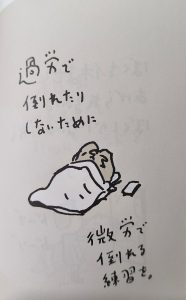 過労で
倒れたり
しないために
微労で
倒れる
練習を。